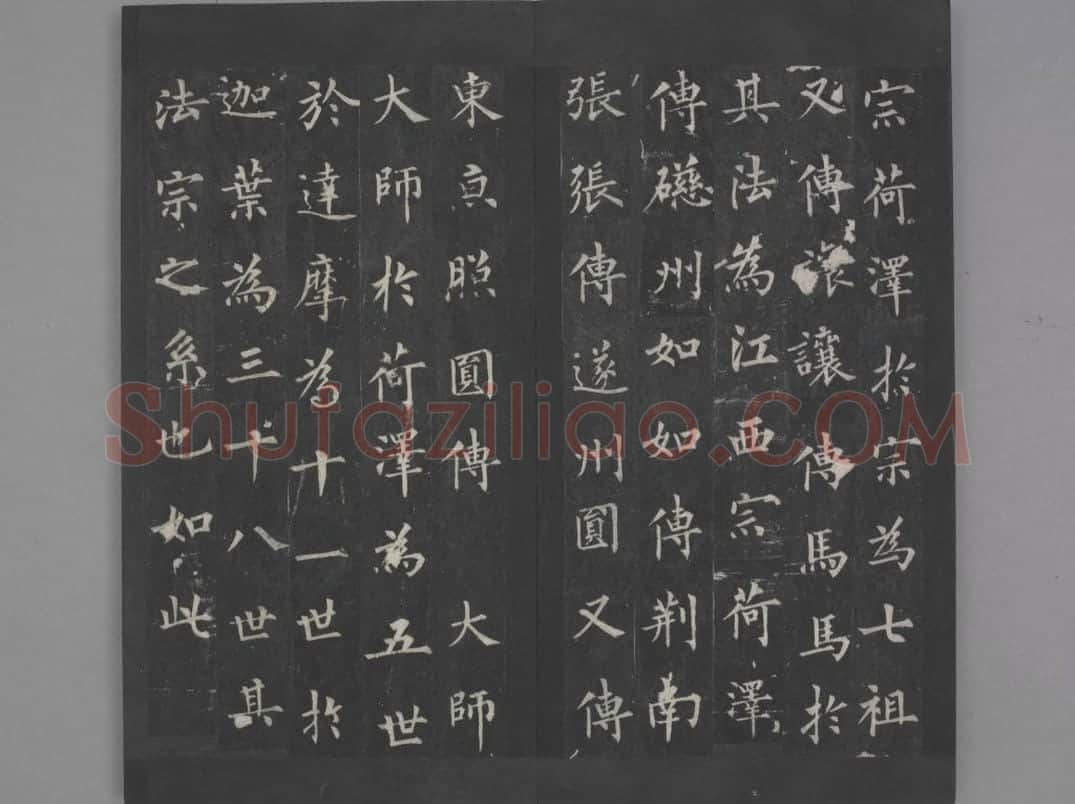 宗荷澤於宗為七祖
又傳讓讓傳馬馬於
其法為江西宗荷澤
傳礠州如如傳荆南
張張傳遂州圓又傳
東亰照圓傳 大師
大師於荷澤為五世
於達摩為十一世於
迦葉為三十八世其
法宗之系也如此
Shufaziliao.COM